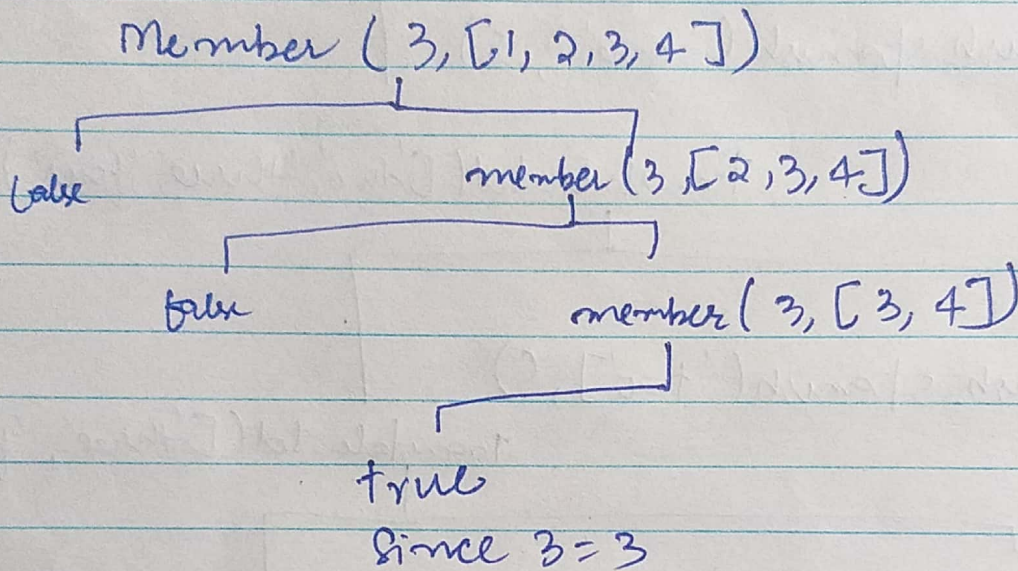 Member (3, [1, 2, 3, 4])
false
member (3, [2, 3, 4])
false
member (3, [3, 4])
true
Since 3 = 3